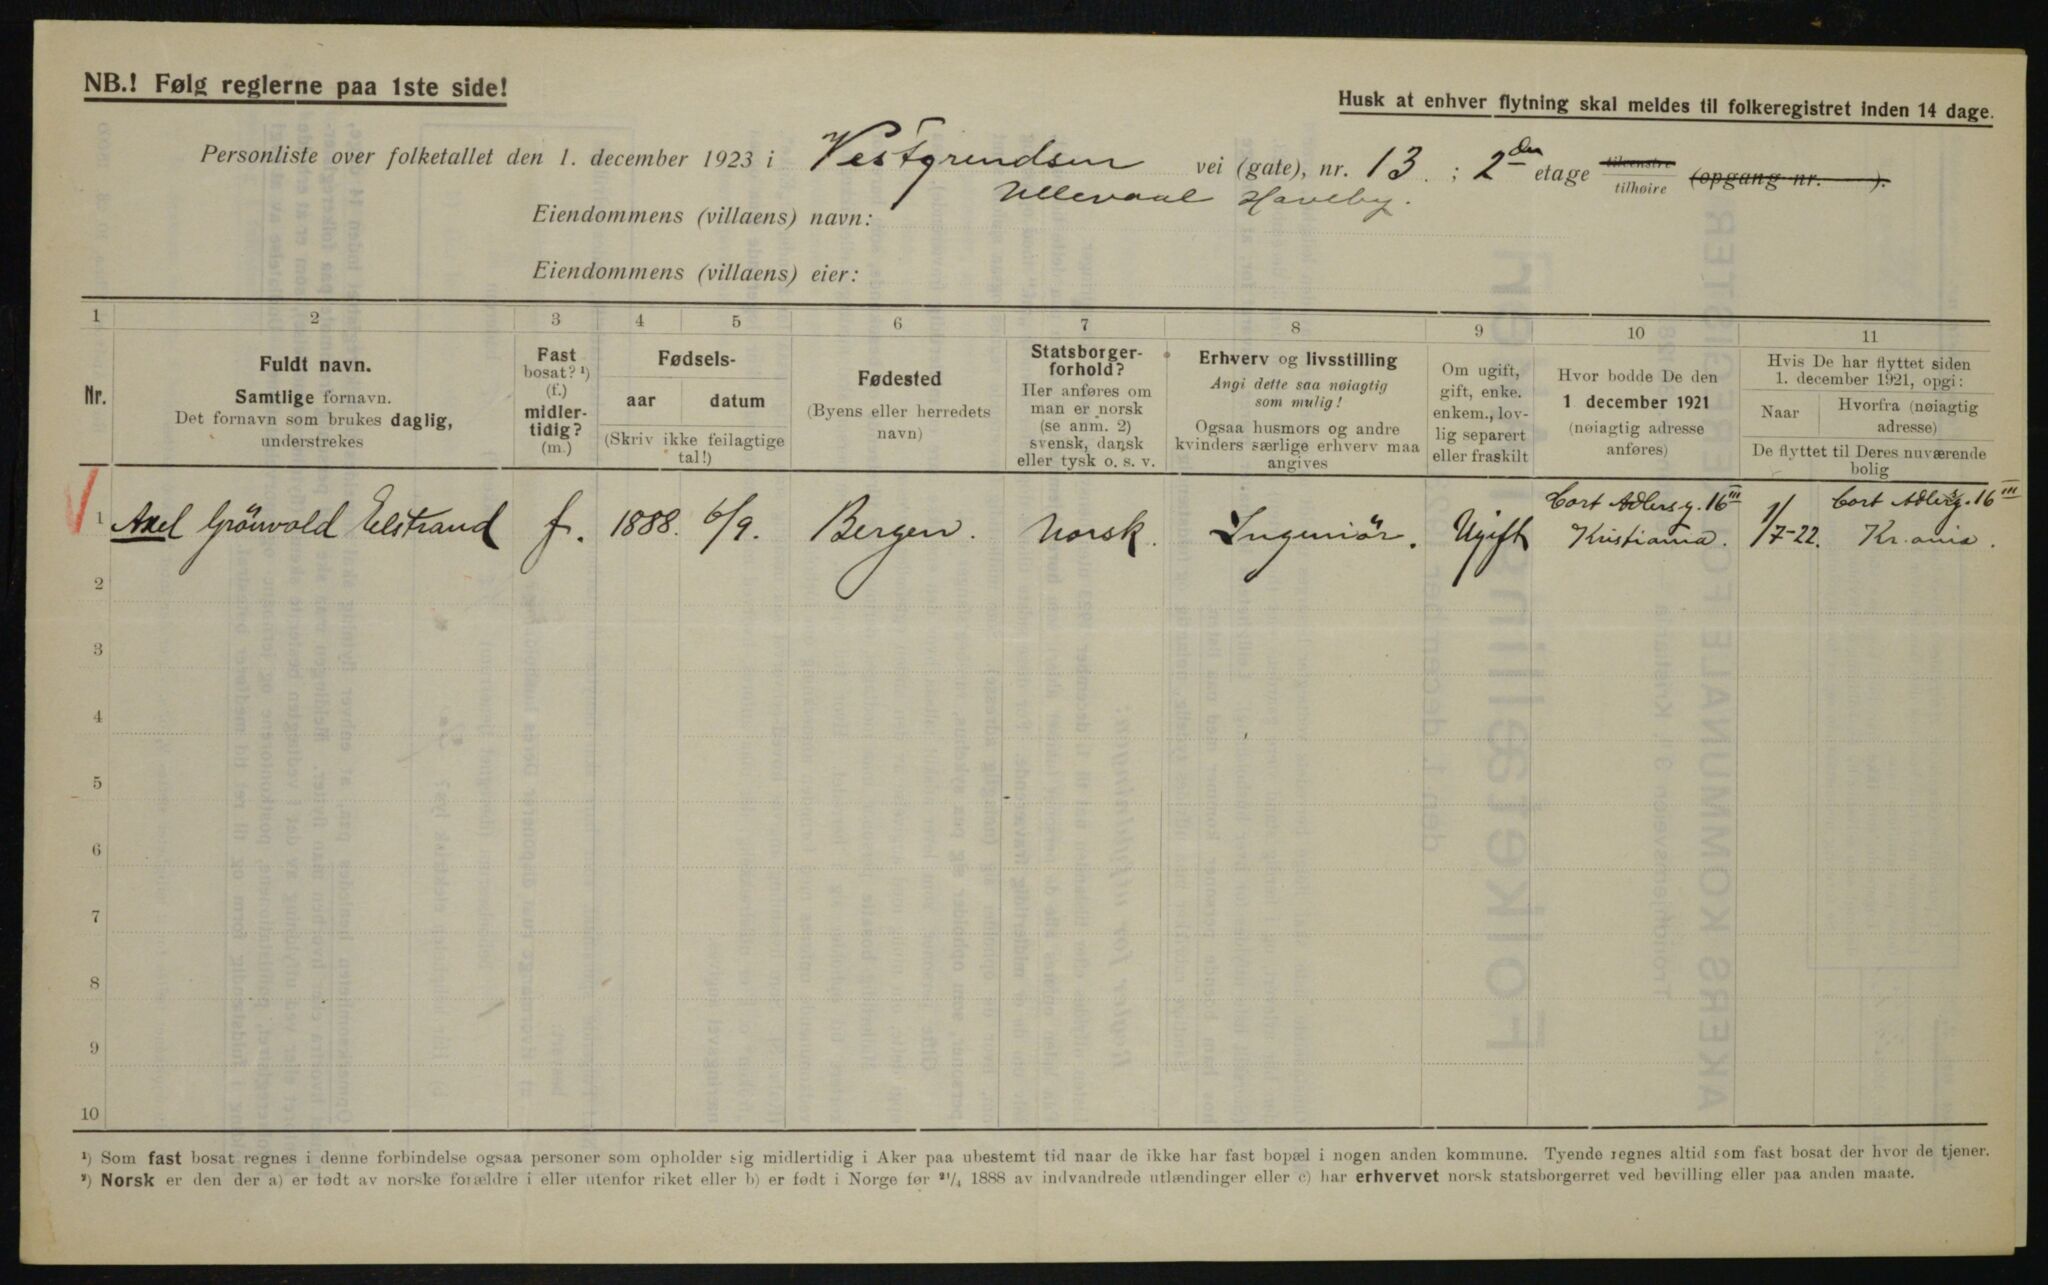 NB.! Følg reglerne paa 1ste side!
Husk at enhver flytning skal meldes til folkeregistret inden 14 dage.
Personliste over folketallet den 1. december 1923 i Vestgrendsen vei (gate), nr. 13 ; 2den etage tilvenstre tilhøire (opgang nr. ).
Ullevaal Haveby.
Eiendommens (villaens) navn:
Eiendommens (villaens) eier:
1 2 3 4 5 6 7 8 9 10 11
Nr.
Fuldt navn.
Samtlige fornavn.
Det fornavn som brukes daglig,
understrekes
Fast
bosat? ¹)
(f.)
midler-
tidig?
(m.)
Fødsels-
aar datum
(Skriv ikke feilagtige
tal!)
Fødested
(Byens eller herredets
navn)
Statsborger-
forhold?
Her anføres om
man er norsk
(se anm. 2)
svensk, dansk
eller tysk o. s. v.
Erhverv og livsstilling
Angi dette saa nøiagtig
som mulig!
Ogsaa husmors og andre
kvinders særlige erhverv maa
angives
Om ugift,
gift, enke.
enkem., lov-
lig separert
eller fraskilt
Hvor bodde De den
1 december 1921
(nøiagtig adresse
anføres)
Hvis De har flyttet siden
1. december 1921, opgi:
Naar
Hvorfra (nøiagtig
adresse)
De flyttet til Deres nuværende
bolig
1 Axel Grönvold Elstrand f. 1888. 6/9. Bergen. Norsk. Ingeniör. Ugift Cort Adlersg. 16 III Kristiania. 1/7-22. Cort Adlersg. 16 III Kr.ania.
2
3
4
5
6
7
8
9
10
¹) Som fast bosat regnes i denne forbindelse ogsaa personer som opholder sig midlertidig i Aker paa ubestemt tid naar de ikke har fast bopæl i nogen anden kommune. Tyende regnes altid som fast bosat der hvor de tjener.
²) Norsk er den der a) er født av norske forældre i eller utenfor riket eller b) er født i Norge før 21/4 1888 av indvandrede utlændinger eller c) har erhvervet norsk statsborgerret ved bevilling eller paa anden maate.